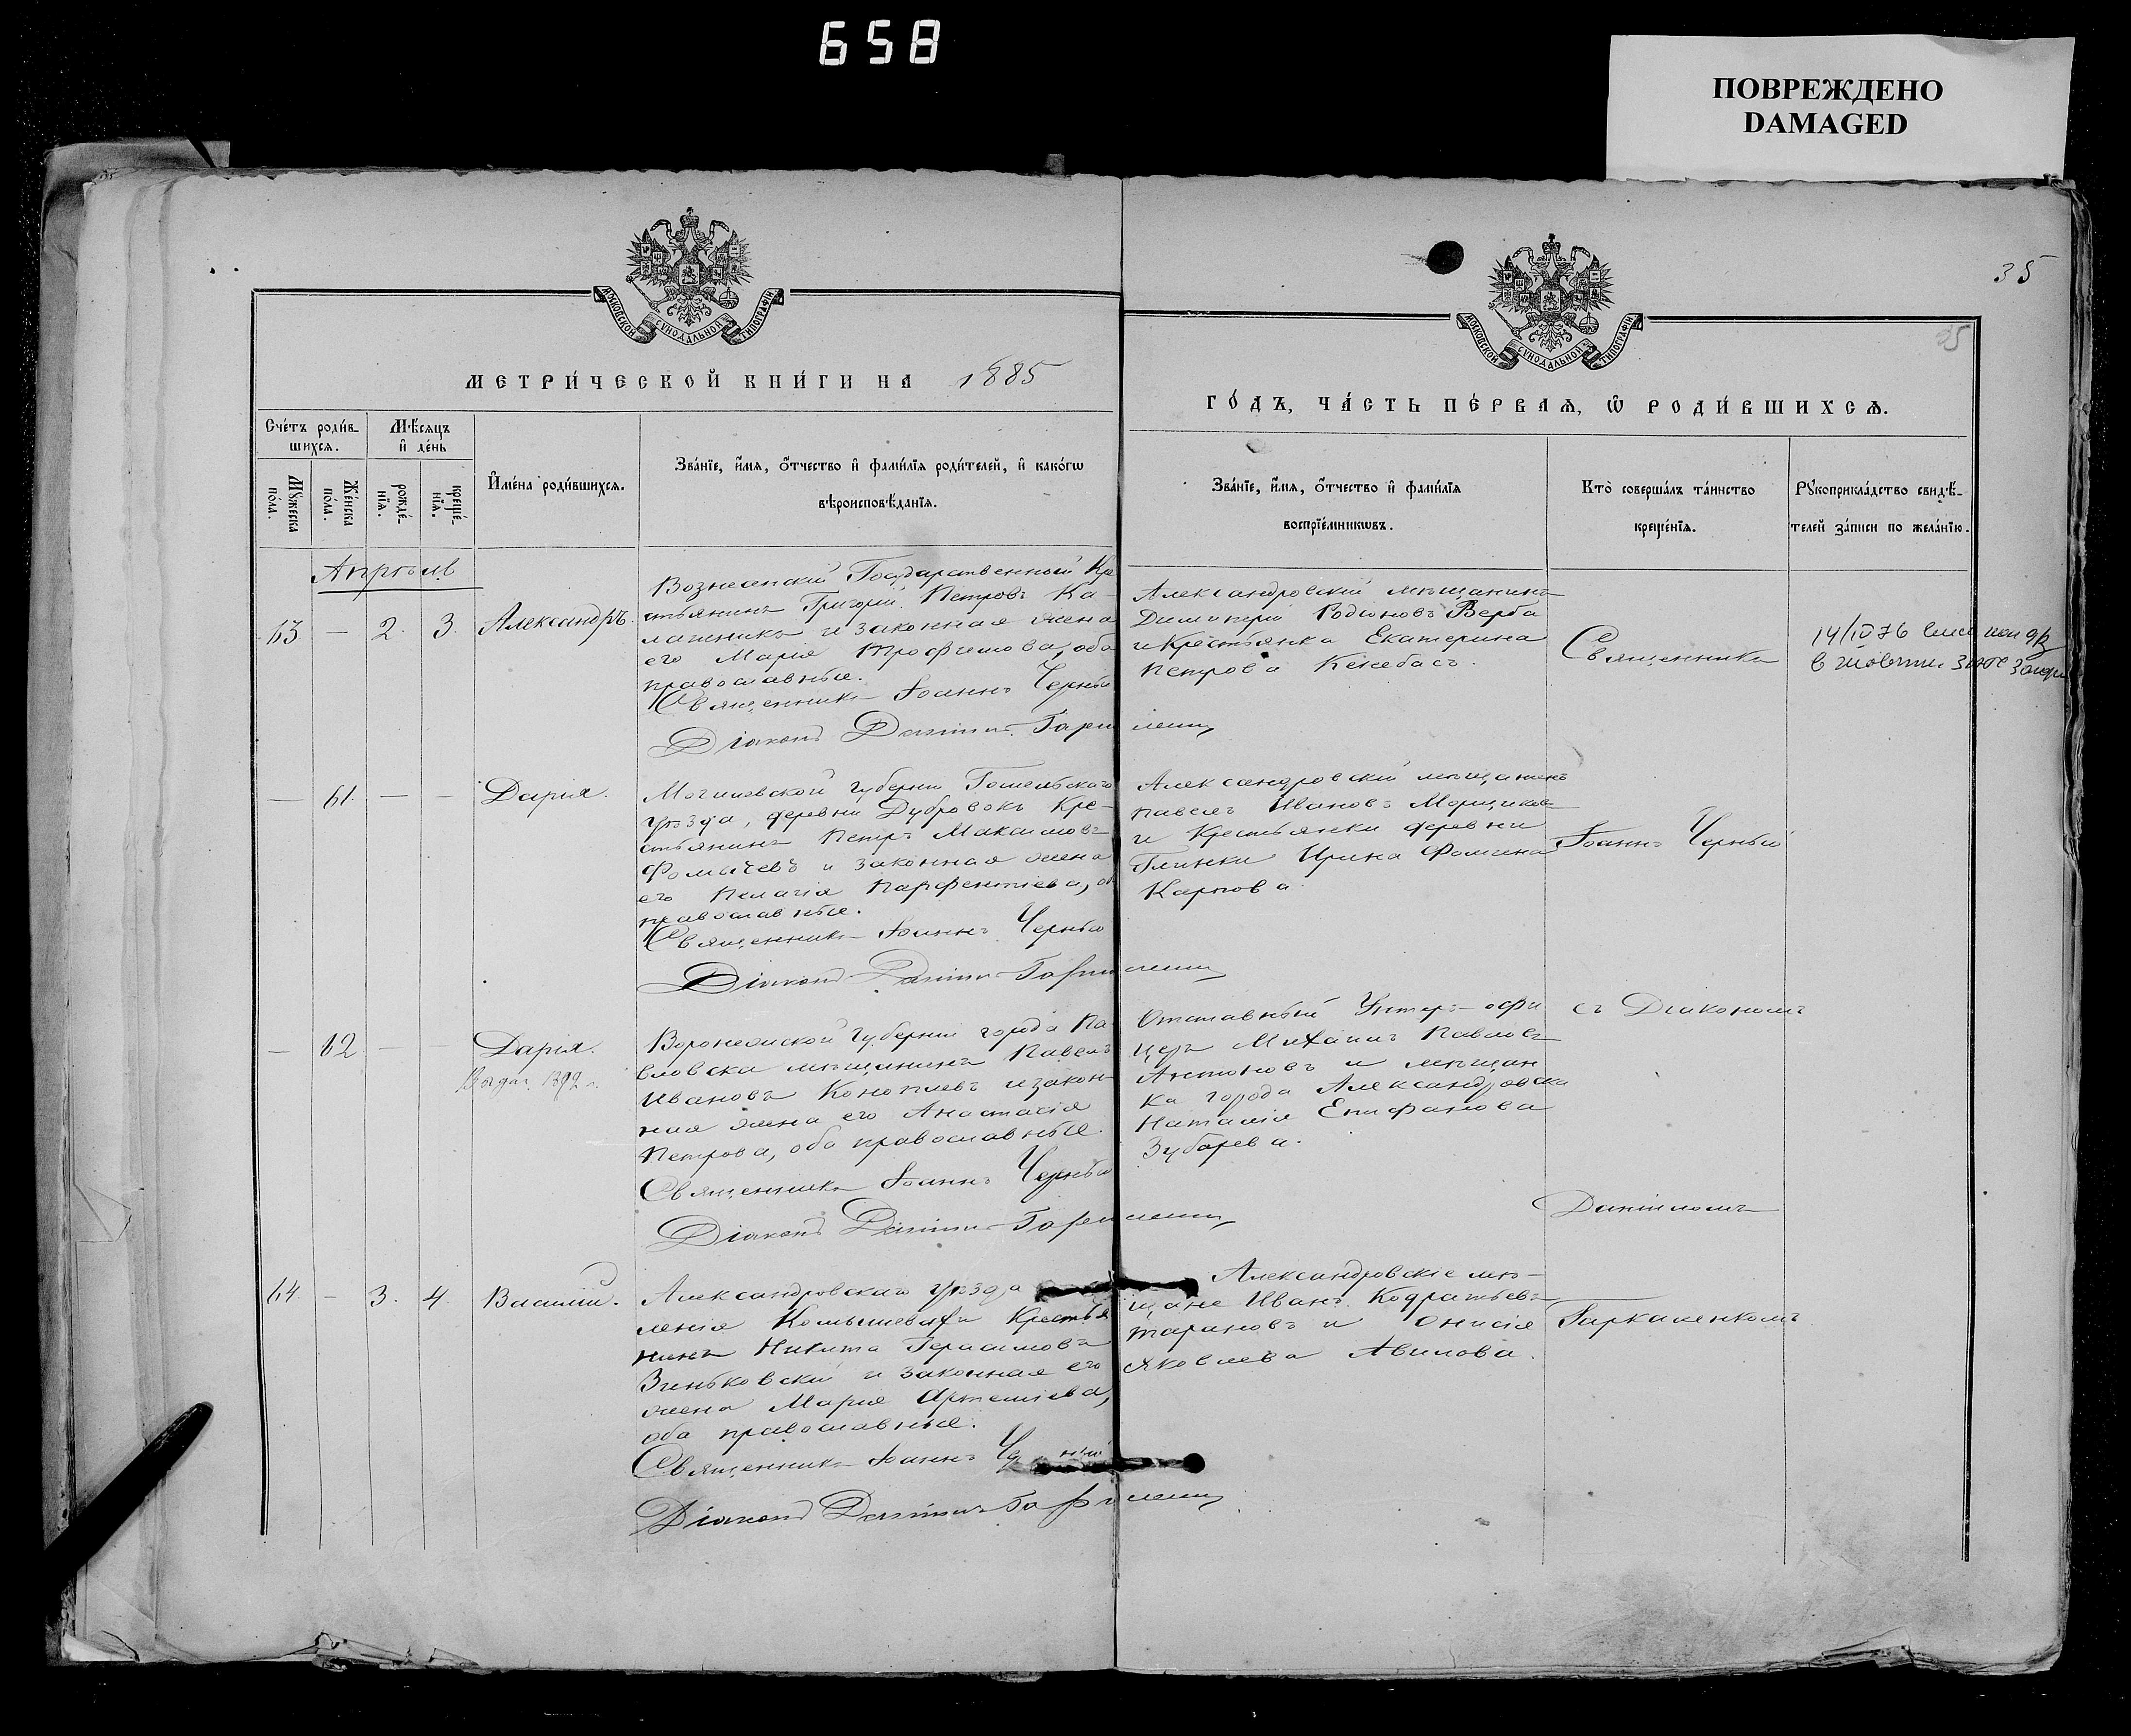 658
ПОВРЕЖДЕНО
DAMAGED
35
35
МОСКОВСКОЙ СѴНОДАЛЬНОЙ ТИПОГРАФІИ
МОСКОВСКОЙ СѴНОДАЛЬНОЙ ТИПОГРАФІИ
МЕТРИ́ЧЕСКОЙ КНИ́ГИ НА 1885
ГО́ДЪ, ЧА́СТЬ ПЕ́РВАѦ, Ѽ РОДИ́ВШИХСѦ.
Сче́тъ роди́в-
шихсѧ.
Мѣ́сѧцъ
и҆ де́нь
Мꙋ́жеска по́ла.
Же́нска по́ла.
рожде́-
нїѧ.
креще́-
нїѧ.
И҆мена̀ роди́вшихсѧ.
Зва́нїе, и҆́мѧ, ѻ҆́тчество и҆ фами́лїѧ роди́телей, и҆ како́гѡ
вѣроисповѣ́данїѧ.
Зва́нїе, и҆́мѧ, ѻ҆́тчество и҆ фами́лїѧ
воспрїе́мникѡвъ.
Кто̀ соверша́лъ та́инство
креще́нїѧ.
Рꙋкоприкла́дство свидѣ́-
телей за́писи по жела́нїю.
Апрѣль
63 — 2. 3. Александръ.
Вознесенскій Государственный Кре
стьянинъ Григорій Петровъ Ка-
лашникъ и законная жена
его Марія Трофимова, оба
православные.
Священникъ Іоаннъ Черный
Діаконъ Даніилъ Гаркаленко
Александровскій мѣщанинъ
Димитрій Родионовъ Верба
и Крестьянка Екатерина
Петрова Кенебасъ.
Священникъ
14/IV 76
— 61. — — Дарія.
Могилевской губерніи Гомельскаго
уѣзда, деревни Дубровокъ Кре-
стьянинъ Петръ Максимовъ
Фомичевъ и законная жена
его Пелагія Парфентіева, об
православные.
Священникъ Іоаннъ Черный
Діаконъ Даніилъ Гаркаленко
Александровскій мѣщанинъ
Павелъ Ивановъ Морщиковъ
и Крестьянка деревни
Глинки Ирина Фомина
Карпова.
Іоаннъ Черный
— 62 — — Дарія.
Выдан. 1892 г.
Воронежской Губерніи города Па
вловска мѣщанинъ Павелъ
Ивановъ Коноплевъ и закон
ная жена его Анастасія
Петрова, оба православные.
Священникъ Іоаннъ Черный
Діаконъ Даніилъ Гаркаленко
Отставный Унтеръ-офи
церъ Михаилъ Павловъ
Антоновъ и мѣщан
ка города Александровска
Наталія Епифанова
Зубарева.
съ Діакономъ
Даніиломъ
64. — 3. 4. Василій.
Александровскаго уѣзда
ленія Комышевахи Крестья
нинъ Никита Герасимовъ
Зиньковскій и законная его
жена Марія Артеміева,
оба православные.
Священникъ Іоаннъ Черный
Діаконъ Даніилъ Гаркаленко
Александровскіе мѣ-
щане Иванъ Кодратьевъ
Тарановъ и Онисія
Яковлева Авилова.
Гаркаленкомъ